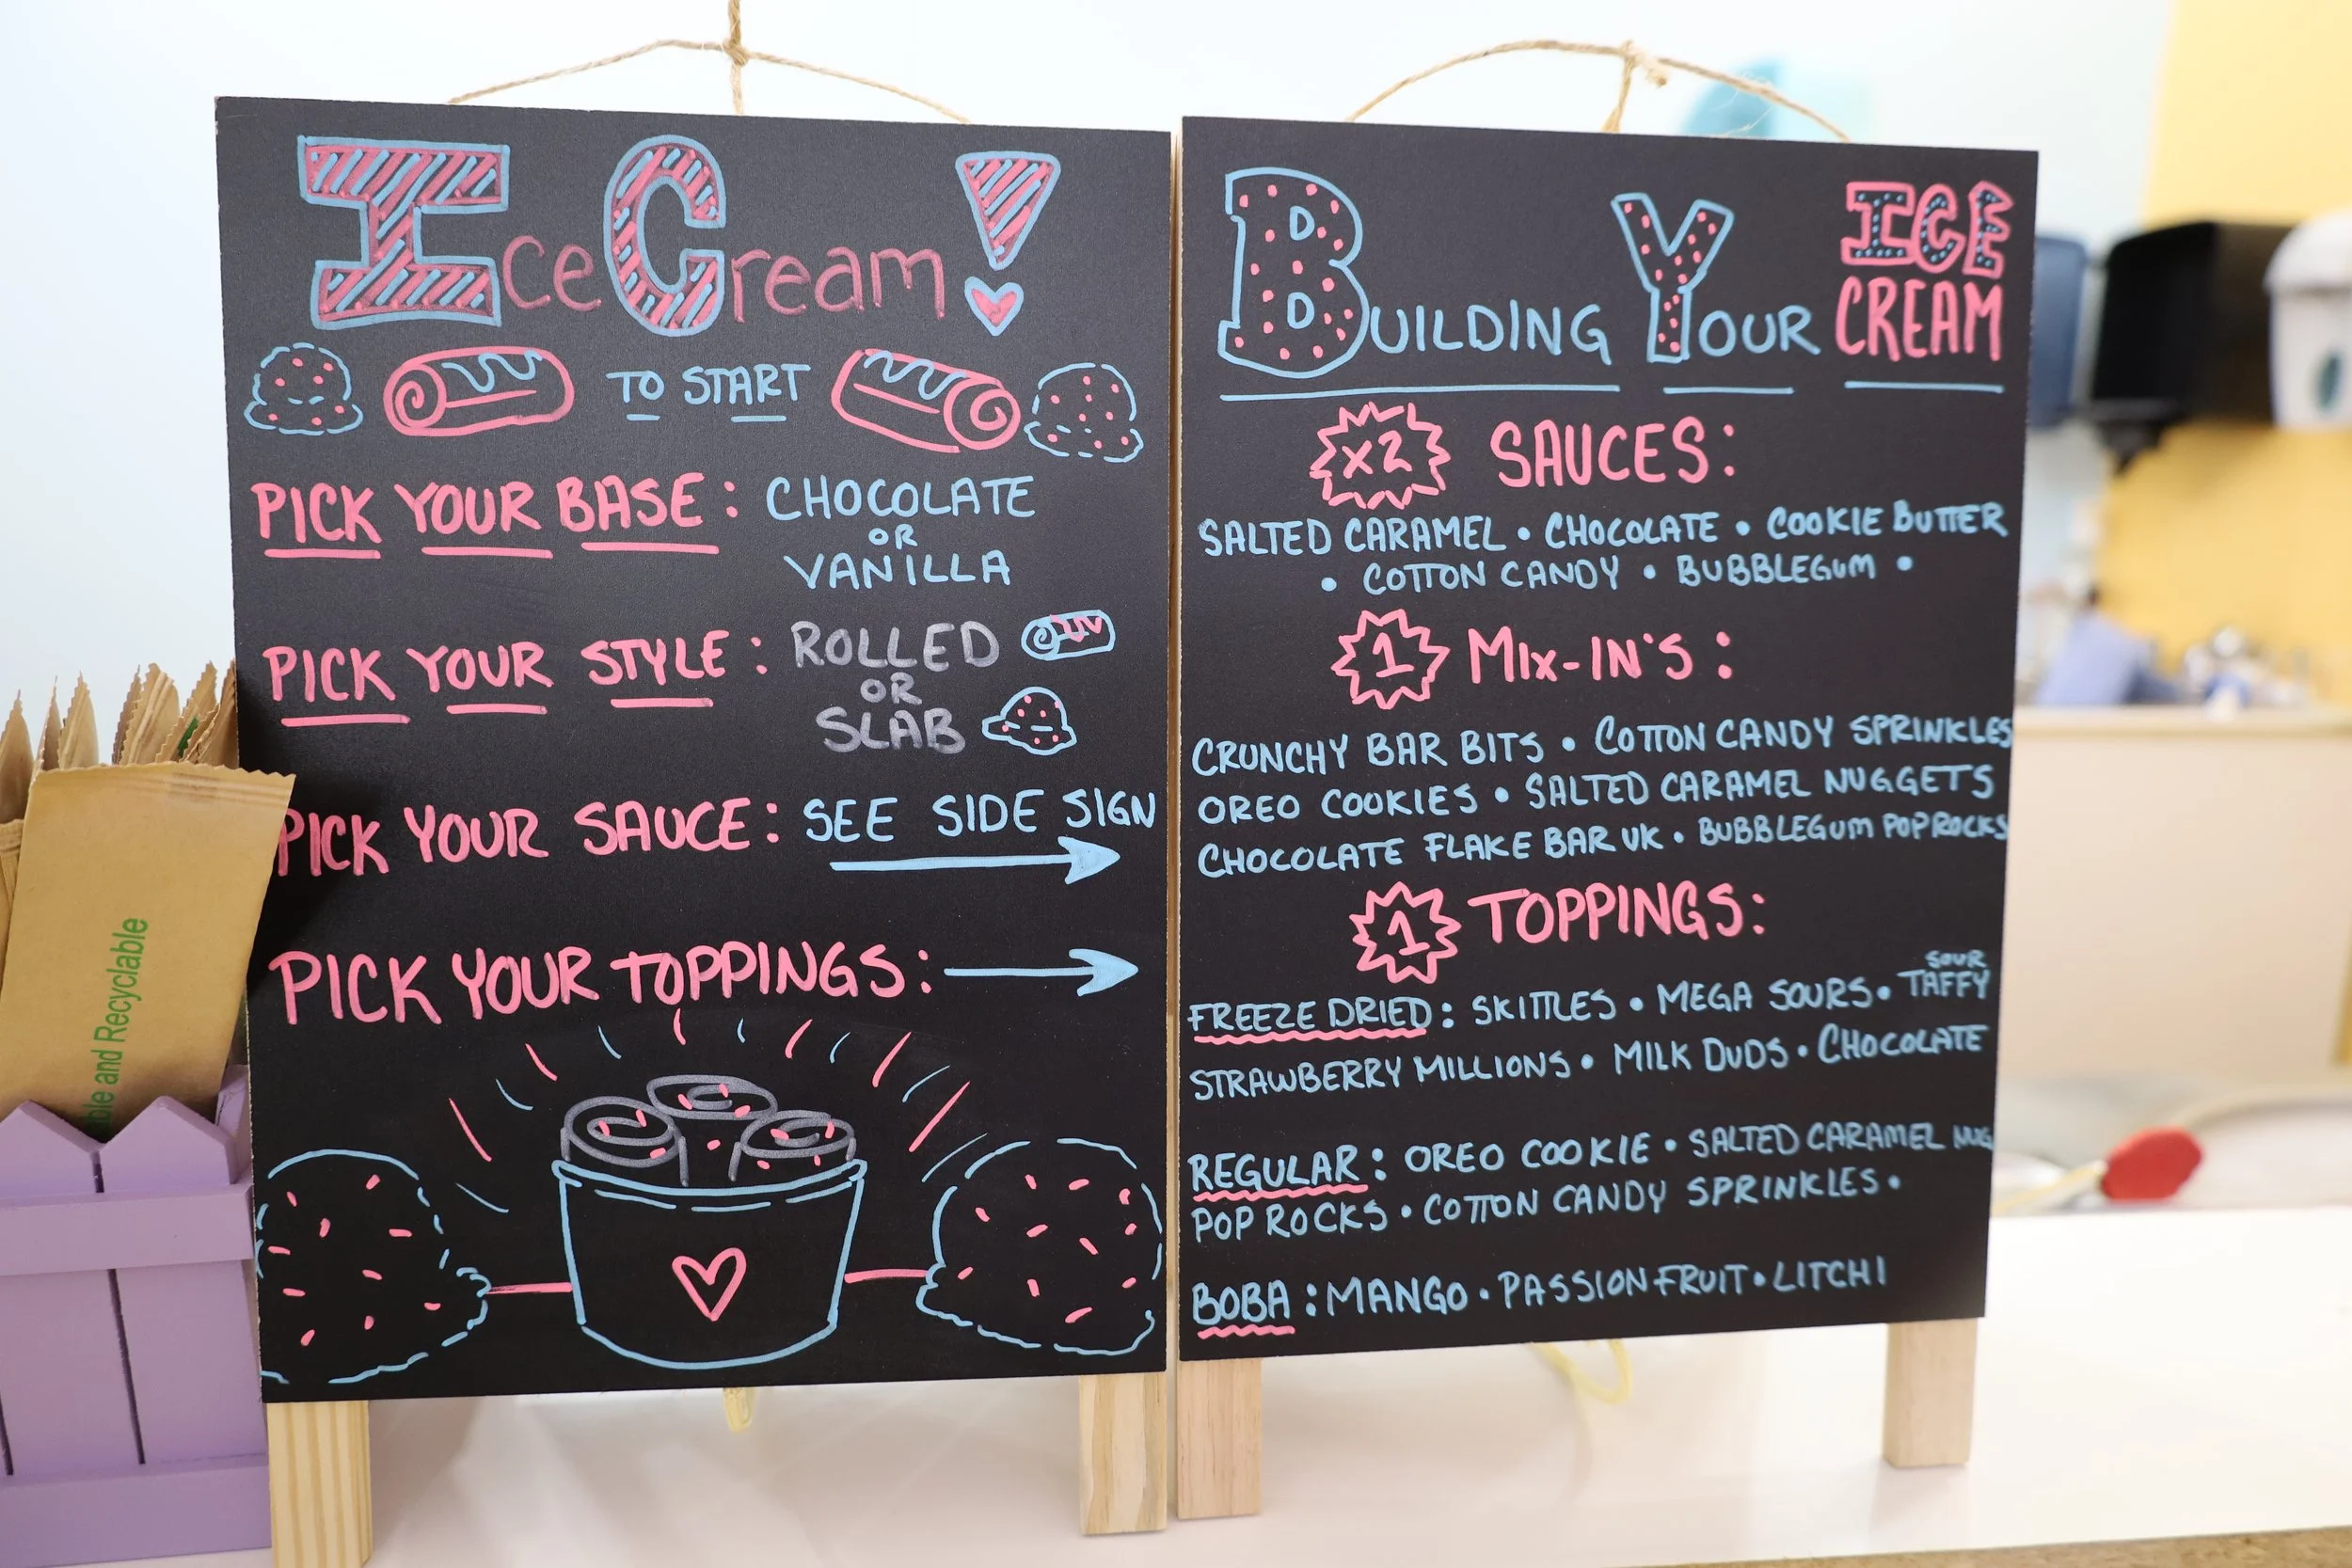 Ice Cream!
TO START
PICK YOUR BASE: CHOCOLATE
OR
VANILLA
PICK YOUR STYLE: ROLLED
OR
SLAB
PICK YOUR SAUCE: SEE SIDE SIGN
PICK YOUR TOPPINGS:
BUILDING YOUR ICE CREAM
x2 SAUCES:
SALTED CARAMEL • CHOCOLATE • COOKIE BUTTER
• COTTON CANDY • BUBBLEGUM •
1 MIX-IN'S:
CRUNCHY BAR BITS • COTTON CANDY SPRINKLES
OREO COOKIES • SALTED CARAMEL NUGGETS
CHOCOLATE FLAKE BAR UK • BUBBLEGUM POPROCKS
1 TOPPINGS:
FREEZE DRIED: SKITTLES • MEGA SOURS • SOUR TAFFY
STRAWBERRY MILLIONS • MILK DUDS • CHOCOLATE
REGULAR: OREO COOKIE • SALTED CARAMEL NUG
POP ROCKS • COTTON CANDY SPRINKLES •
BOBA: MANGO • PASSION FRUIT • LITCHI
and Recyclable